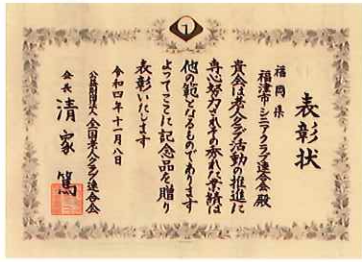 表彰状
福岡県
福津市シニアクラブ連合会殿
貴会は老人クラブ活動の推進に
専心努力されその秀れた業績は
他の範となるものであります
よってここに記念品を贈り
表彰いたします
令和四年十一月八日
公益財団法人全国老人クラブ連合会
会長 清家篤